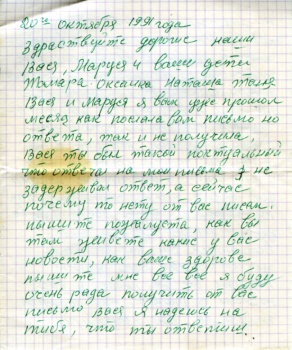 20го октября 1991 года
Здраствуйте дорогие наши
Вася, Маруся и ваши дети
Тамара Оксанка Наташа Толя
Вася и Маруся я вам уже прошол
месяц как послала вам письмо но
ответа, так и не получила,
Вася ты был такой поктуальный
что отвечал на мои письма не
задерживал ответ, а сейчас
почему то нету от вас писем.
пишите пожалуста, как вы
там живете какие у вас
новости, как ваше здоровье
пишите мне все все я буду
очень рада получить от вас
письмо Вася я надеюсь на
тибя, что ты ответиш.